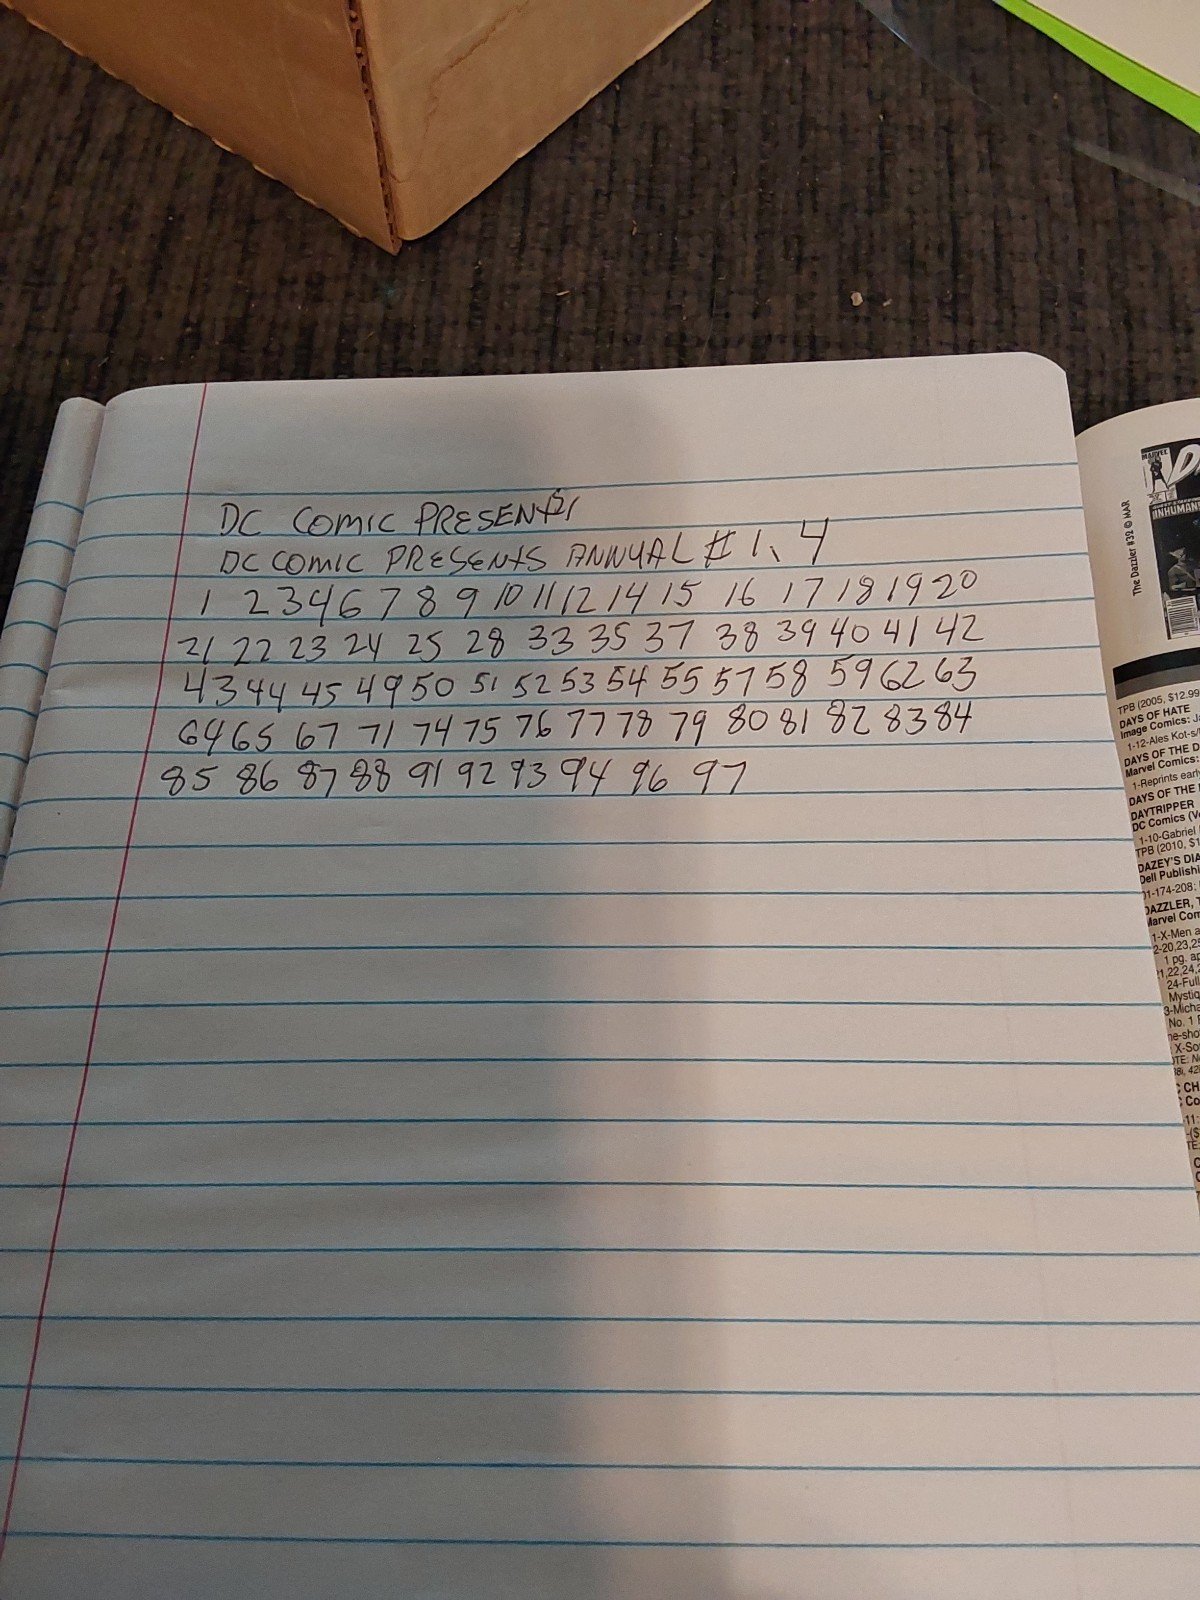 DC COMIC PRESENTS
DC COMIC PRESENTS ANNUAL # 1, 4
1 2 3 4 6 7 8 9 10 11 12 14 15 16 17 18 19 20
21 22 23 24 25 28 33 35 37 38 39 40 41 42
43 44 45 49 50 51 52 53 54 55 57 58 59 62 63
64 65 67 71 74 75 76 77 78 79 80 81 82 83 84
85 86 87 88 91 92 93 94 96 97
MARVEL
INHUMANS
The Dazzler #32 © MAR
TPB (2005, $12.99
DAYS OF HATE
Image Comics:
1-12-Ales Kot-s/
DAYS OF THE
Marvel Comics:
1-Reprints earl
DAYS OF THE
DAYTRIPPER
DC Comics (V
1-10-Gabriel
TPB (2010, $1
DAZEY'S DIA
Dell Publishi
01-174-208:
DAZZLER, T
Marvel Com
1-X-Men a
2-20,23,25
1 pg. ap
21,22,24,2
24-Full
Mystiq
3-Micha
No. 1
ne-sho
X-So
TE: